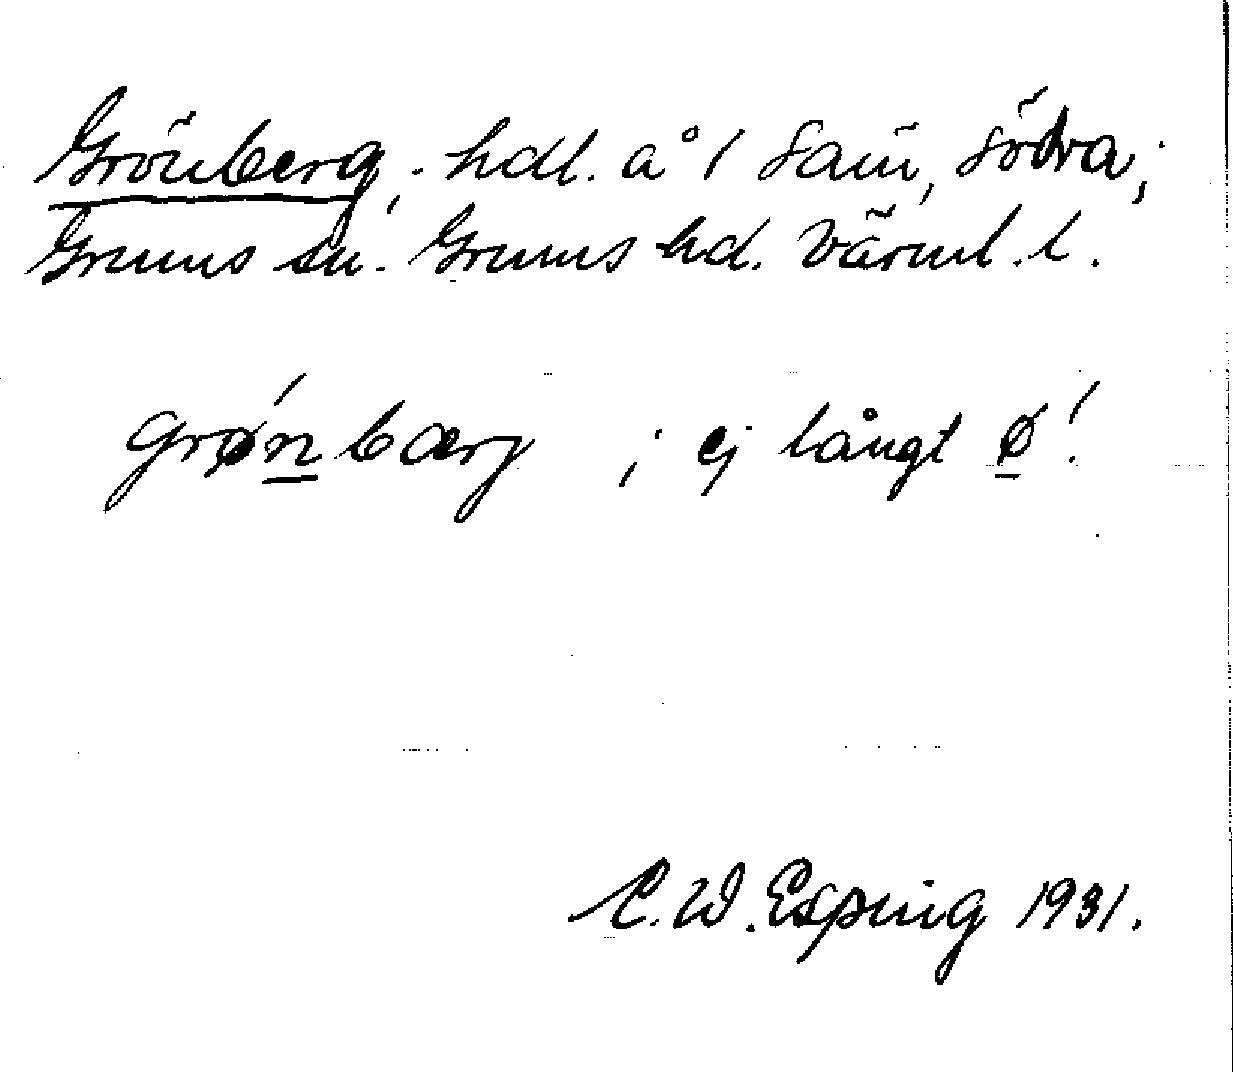 Grönberg, hdl. å 1 Säm, södra;
Grums sn. Grums hd. Värml. l.
grǿnbærg ; ej långt ø!
C. W. Esping 1931.